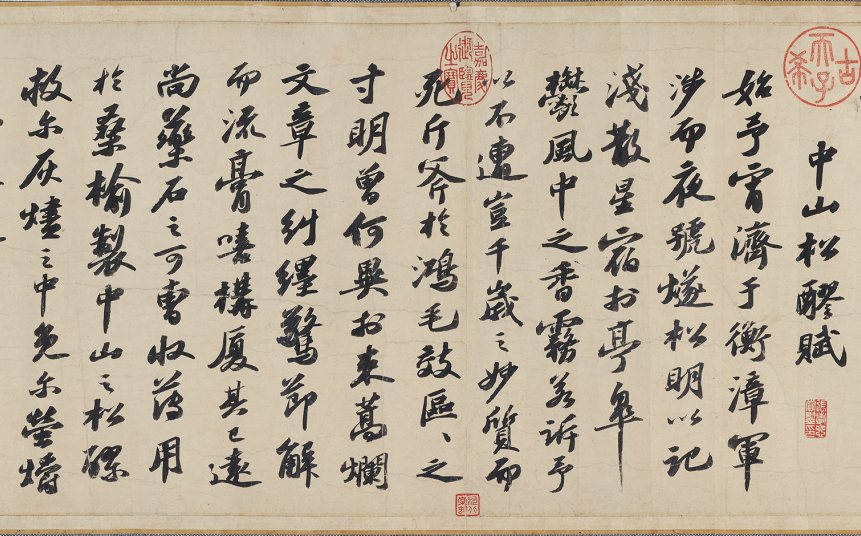 古希天子
中山松醪賦
始予宵濟于衡漳軍
涉而夜號燧松明以記
淺散星宿於亭皐
鬱風中之香霧若訴予
嘉慶御覽之寶
以不遭豈千歲之妙質而
死斤斧於鴻毛效區〻之
寸明曾何異於束蒿爛
文章之糾纆驚節解
而流膏嘻構厦其已遠
尚藥石之可曹收薄用
於桑榆製中山之松醪
救尒灰燼之中免尒螢爝